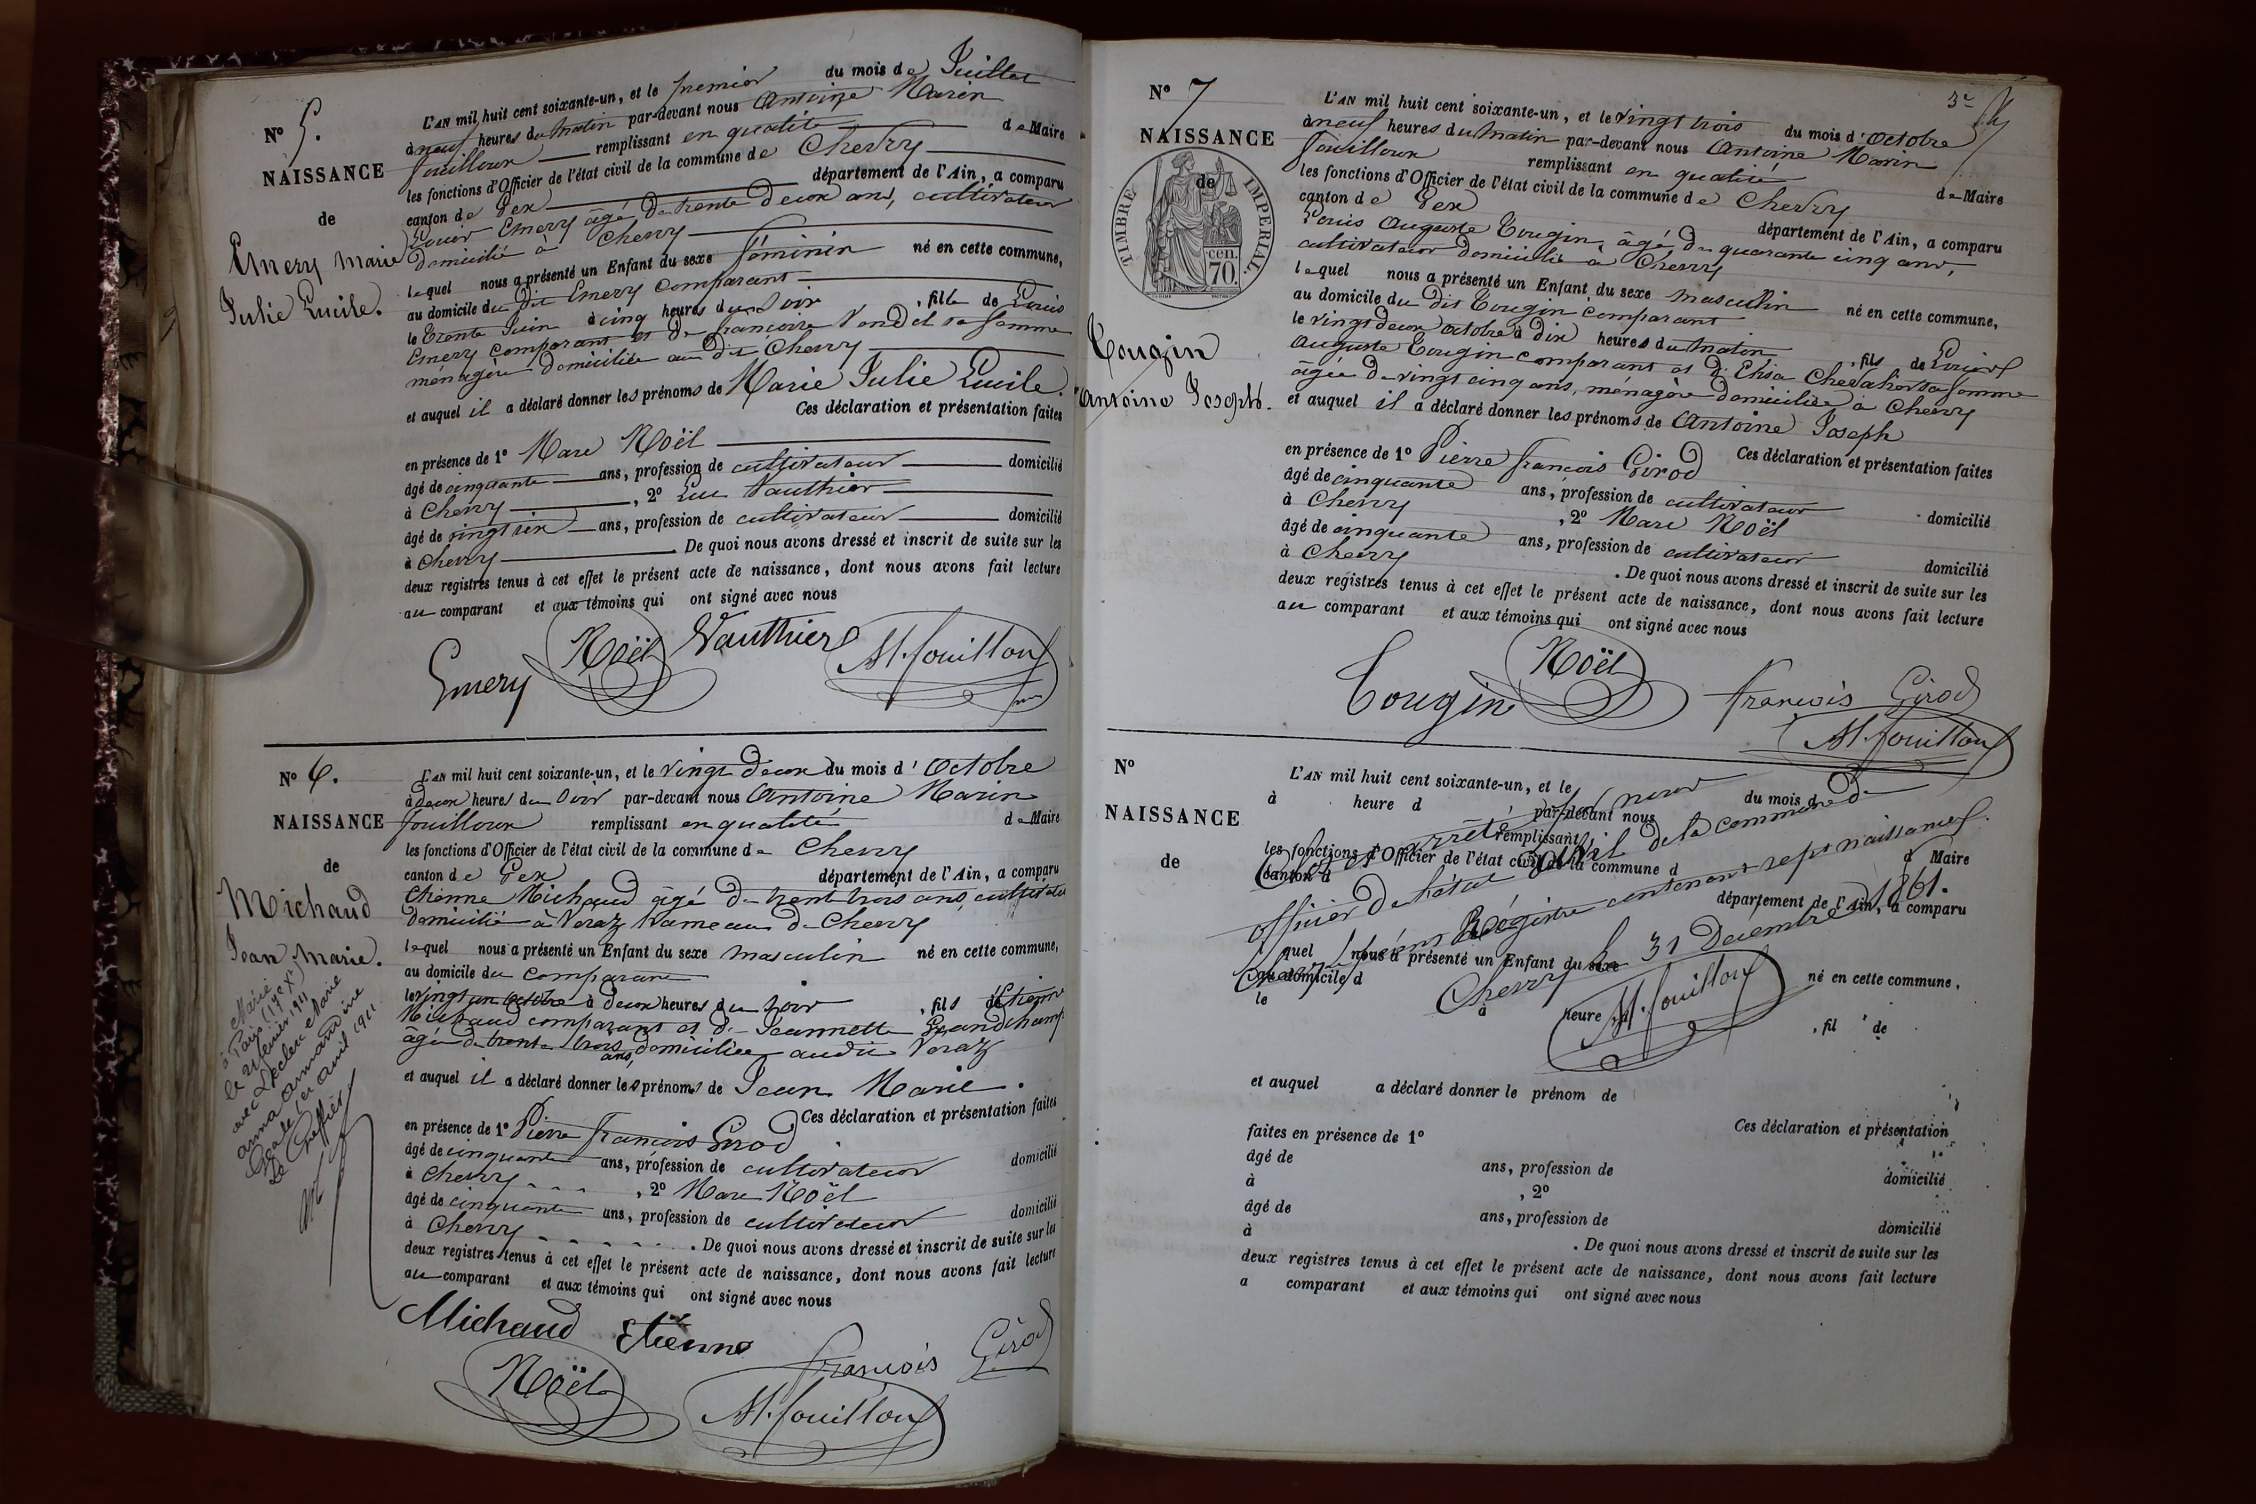 N° 5.
NAISSANCE
de
Emery Marie
Julie Lucile.
L'AN mil huit cent soixante-un, et le premier du mois de Juillet
à neuf heures du Matin par-devant nous Antoine Marin
Fouilloux remplissant en qualité de Maire
les fonctions d'Officier de l'état civil de la commune de Chevry
canton de Gex département de l'Ain, a comparu
Louis Emery âgé de trente deux ans, cultivateur
domicilié à Chevry
lequel nous a présenté un Enfant du sexe féminin né en cette commune,
au domicile du dit Emery comparant
le trente Juin à cinq heures du Soir, fille de Louis
Emery comparant et de françoise Vendel sa femme
ménagère domiciliée au dit Chevry
et auquel il a déclaré donner les prénoms de Marie Julie Lucile.
Ces déclaration et présentation faites
en présence de 1° Marc Noël
âgé de cinquante ans, profession de cultivateur domicilié
à Chevry, 2° Luc Vauthier
âgé de vingt six ans, profession de cultivateur domicilié
à Chevry. De quoi nous avons dressé et inscrit de suite sur les
deux registres tenus à cet effet le présent acte de naissance, dont nous avons fait lecture
au comparant et aux témoins qui ont signé avec nous
Emery Noël Vauthier AM. fouilloux
N° 6.
NAISSANCE
de
Michaud
Jean Marie.
Marié
à Paris (19e X)
le 21 Février 1911
avec Leclerc Marie
anna armandine
le 1er avril 1911
Le Greffier
L'AN mil huit cent soixante-un, et le vingt deux du mois d'Octobre
à deux heures du Soir par-devant nous Antoine Marin
fouilloux remplissant en qualité de Maire
les fonctions d'Officier de l'état civil de la commune de Chevry
canton de Gex département de l'Ain, a comparu
Etienne Michaud âgé de trente trois ans, cultivateur
domicilié à Veraz hameau de Chevry
lequel nous a présenté un Enfant du sexe masculin né en cette commune,
au domicile du comparant
le vingt un Octobre à deux heures du Soir, fils de Etienne
Michaud comparant et de Jeannette Grandchamp
âgée de trente trois ans, domiciliée audit Veraz
et auquel il a déclaré donner les prénoms de Jean Marie.
Ces déclaration et présentation faites
en présence de 1° Pierre françois Girod
âgé de cinquante ans, profession de cultivateur domicilié
à Chevry, 2° Marc Noël
âgé de cinquante ans, profession de cultivateur domicilié
à Chevry. De quoi nous avons dressé et inscrit de suite sur les
deux registres tenus à cet effet le présent acte de naissance, dont nous avons fait lecture
au comparant et aux témoins qui ont signé avec nous
Michaud Etienne
françois Girod
Noël AM. fouilloux
3e
N° 7
NAISSANCE
de
TIMBRE IMPERIAL.
70. cen.
Tougin
Antoine Joseph.
L'AN mil huit cent soixante-un, et le vingt trois du mois d'Octobre
à neuf heures du Matin par-devant nous Antoine Marin
fouilloux remplissant en qualité de Maire
les fonctions d'Officier de l'état civil de la commune de Chevry
canton de Gex département de l'Ain, a comparu
Louis Auguste Tougin, âgé de quarante cinq ans,
cultivateur domicilié à Chevry
lequel nous a présenté un Enfant du sexe masculin né en cette commune,
au domicile du dit Tougin comparant
le vingt deux Octobre à dix heures du Matin, fils de Louis
Auguste Tougin comparant et d'Elisa Chevalier sa femme
âgée de vingt cinq ans, ménagère domiciliée à Chevry
et auquel il a déclaré donner les prénoms de Antoine Joseph
Ces déclaration et présentation faites
en présence de 1° Pierre françois Girod
âgé de cinquante ans, profession de cultivateur domicilié
à Chevry, 2° Marc Noël
âgé de cinquante ans, profession de cultivateur domicilié
à Chevry. De quoi nous avons dressé et inscrit de suite sur les
deux registres tenus à cet effet le présent acte de naissance, dont nous avons fait lecture
au comparant et aux témoins qui ont signé avec nous
Tougin Noël françois Girod
AM. fouilloux
N°
NAISSANCE
de
L'AN mil huit cent soixante-un, et le du mois d
à heure d par-devant nous
remplissant d Maire
les fonctions d'Officier de l'état civil de la commune d
canton d département de l'Ain, a comparu
Clos et arrêté par nous
officier de l'état civil de la commune de
Chevry le présent Régistre contenant sept naissances.
Chevry le 31 Décembre 1861.
AM. fouilloux
quel nous a présenté un Enfant du sexe né en cette commune,
au domicile d
le à heure d, fil de
et auquel a déclaré donner le prénom de
Ces déclaration et présentation
faites en présence de 1°
âgé de ans, profession de domicilié
à, 2°
âgé de ans, profession de domicilié
à. De quoi nous avons dressé et inscrit de suite sur les
deux registres tenus à cet effet le présent acte de naissance, dont nous avons fait lecture
a comparant et aux témoins qui ont signé avec nous